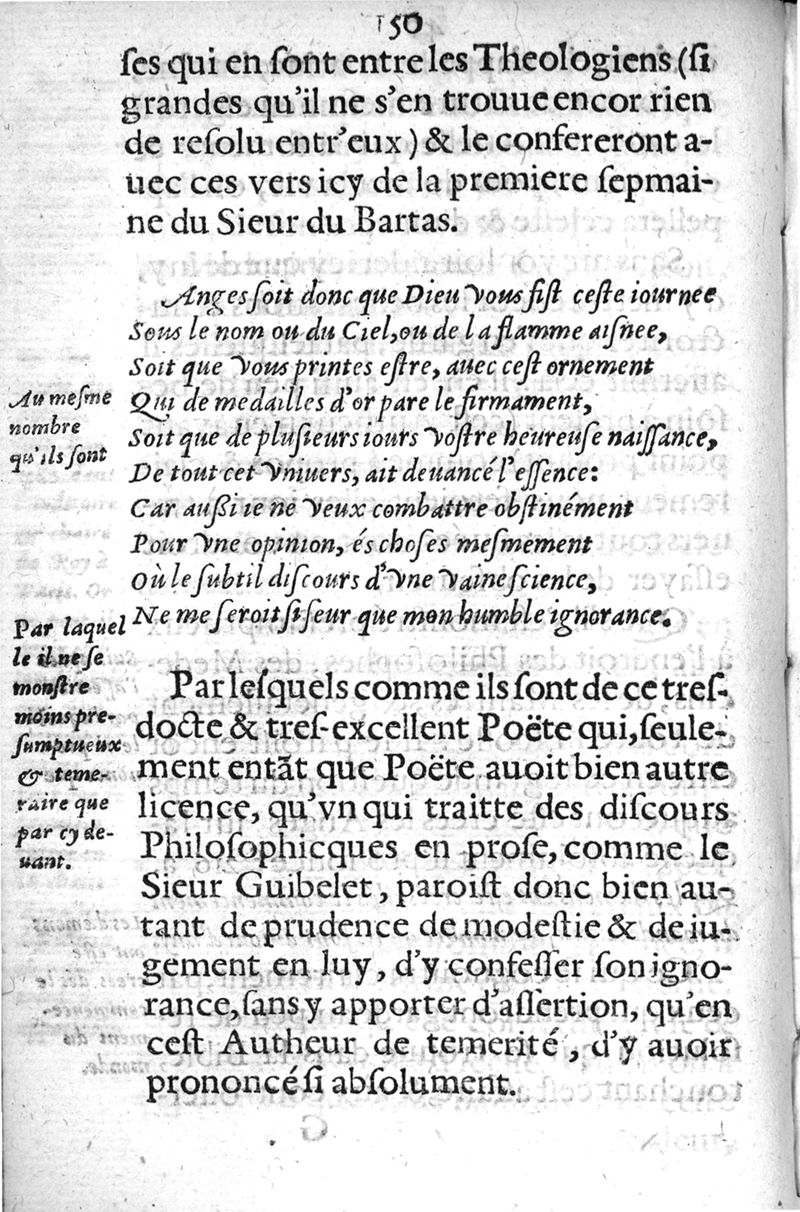 150
ſes qui en ſont entre les Theologiens (ſi
grandes qu'il ne s'en trouue encor rien
de reſolu entr'eux) & le confereront a-
uec ces vers icy de la premiere ſepmai-
ne du Sieur du Bartas.
Anges ſoit donc que Dieu vous fiſt ceſte iournee
Sous le nom ou du Ciel, ou de la flamme aiſnee,
Soit que vous printes eſtre, auec ceſt ornement
Qui de medailles d'or pare le firmament,
Soit que de pluſieurs iours voſtre heureuſe naiſſance,
De tout cet vniuers, ait deuancé l'eſſence:
Car außi ie ne veux combattre obſtinément
Pour vne opinion, és choſes meſmement
Où le ſubtil diſcours d'vne vaine ſcience,
Ne me ſeroit ſi ſeur que mon humble ignorance.
Au meſme
nombre
qu'ils ſont
Par leſquels comme ils ſont de ce treſ-
docte & treſ-excellent Poëte qui, ſeule-
ment entãt que Poëte auoit bien autre
licence, qu'vn qui traitte des diſcours
Philoſophicques en proſe, comme le
Sieur Guibelet, paroiſt donc bien au-
tant de prudence de modeſtie & de iu-
gement en luy, d'y confeſſer ſon igno-
rance, ſans y apporter d'aſſertion, qu'en
ceſt Autheur de temerité, d'y auoir
prononcé ſi abſolument.
Par laquel
le il ne ſe
monſtre
moins pre-
ſumptueux
& teme-
raire que
par cy de-
uant.